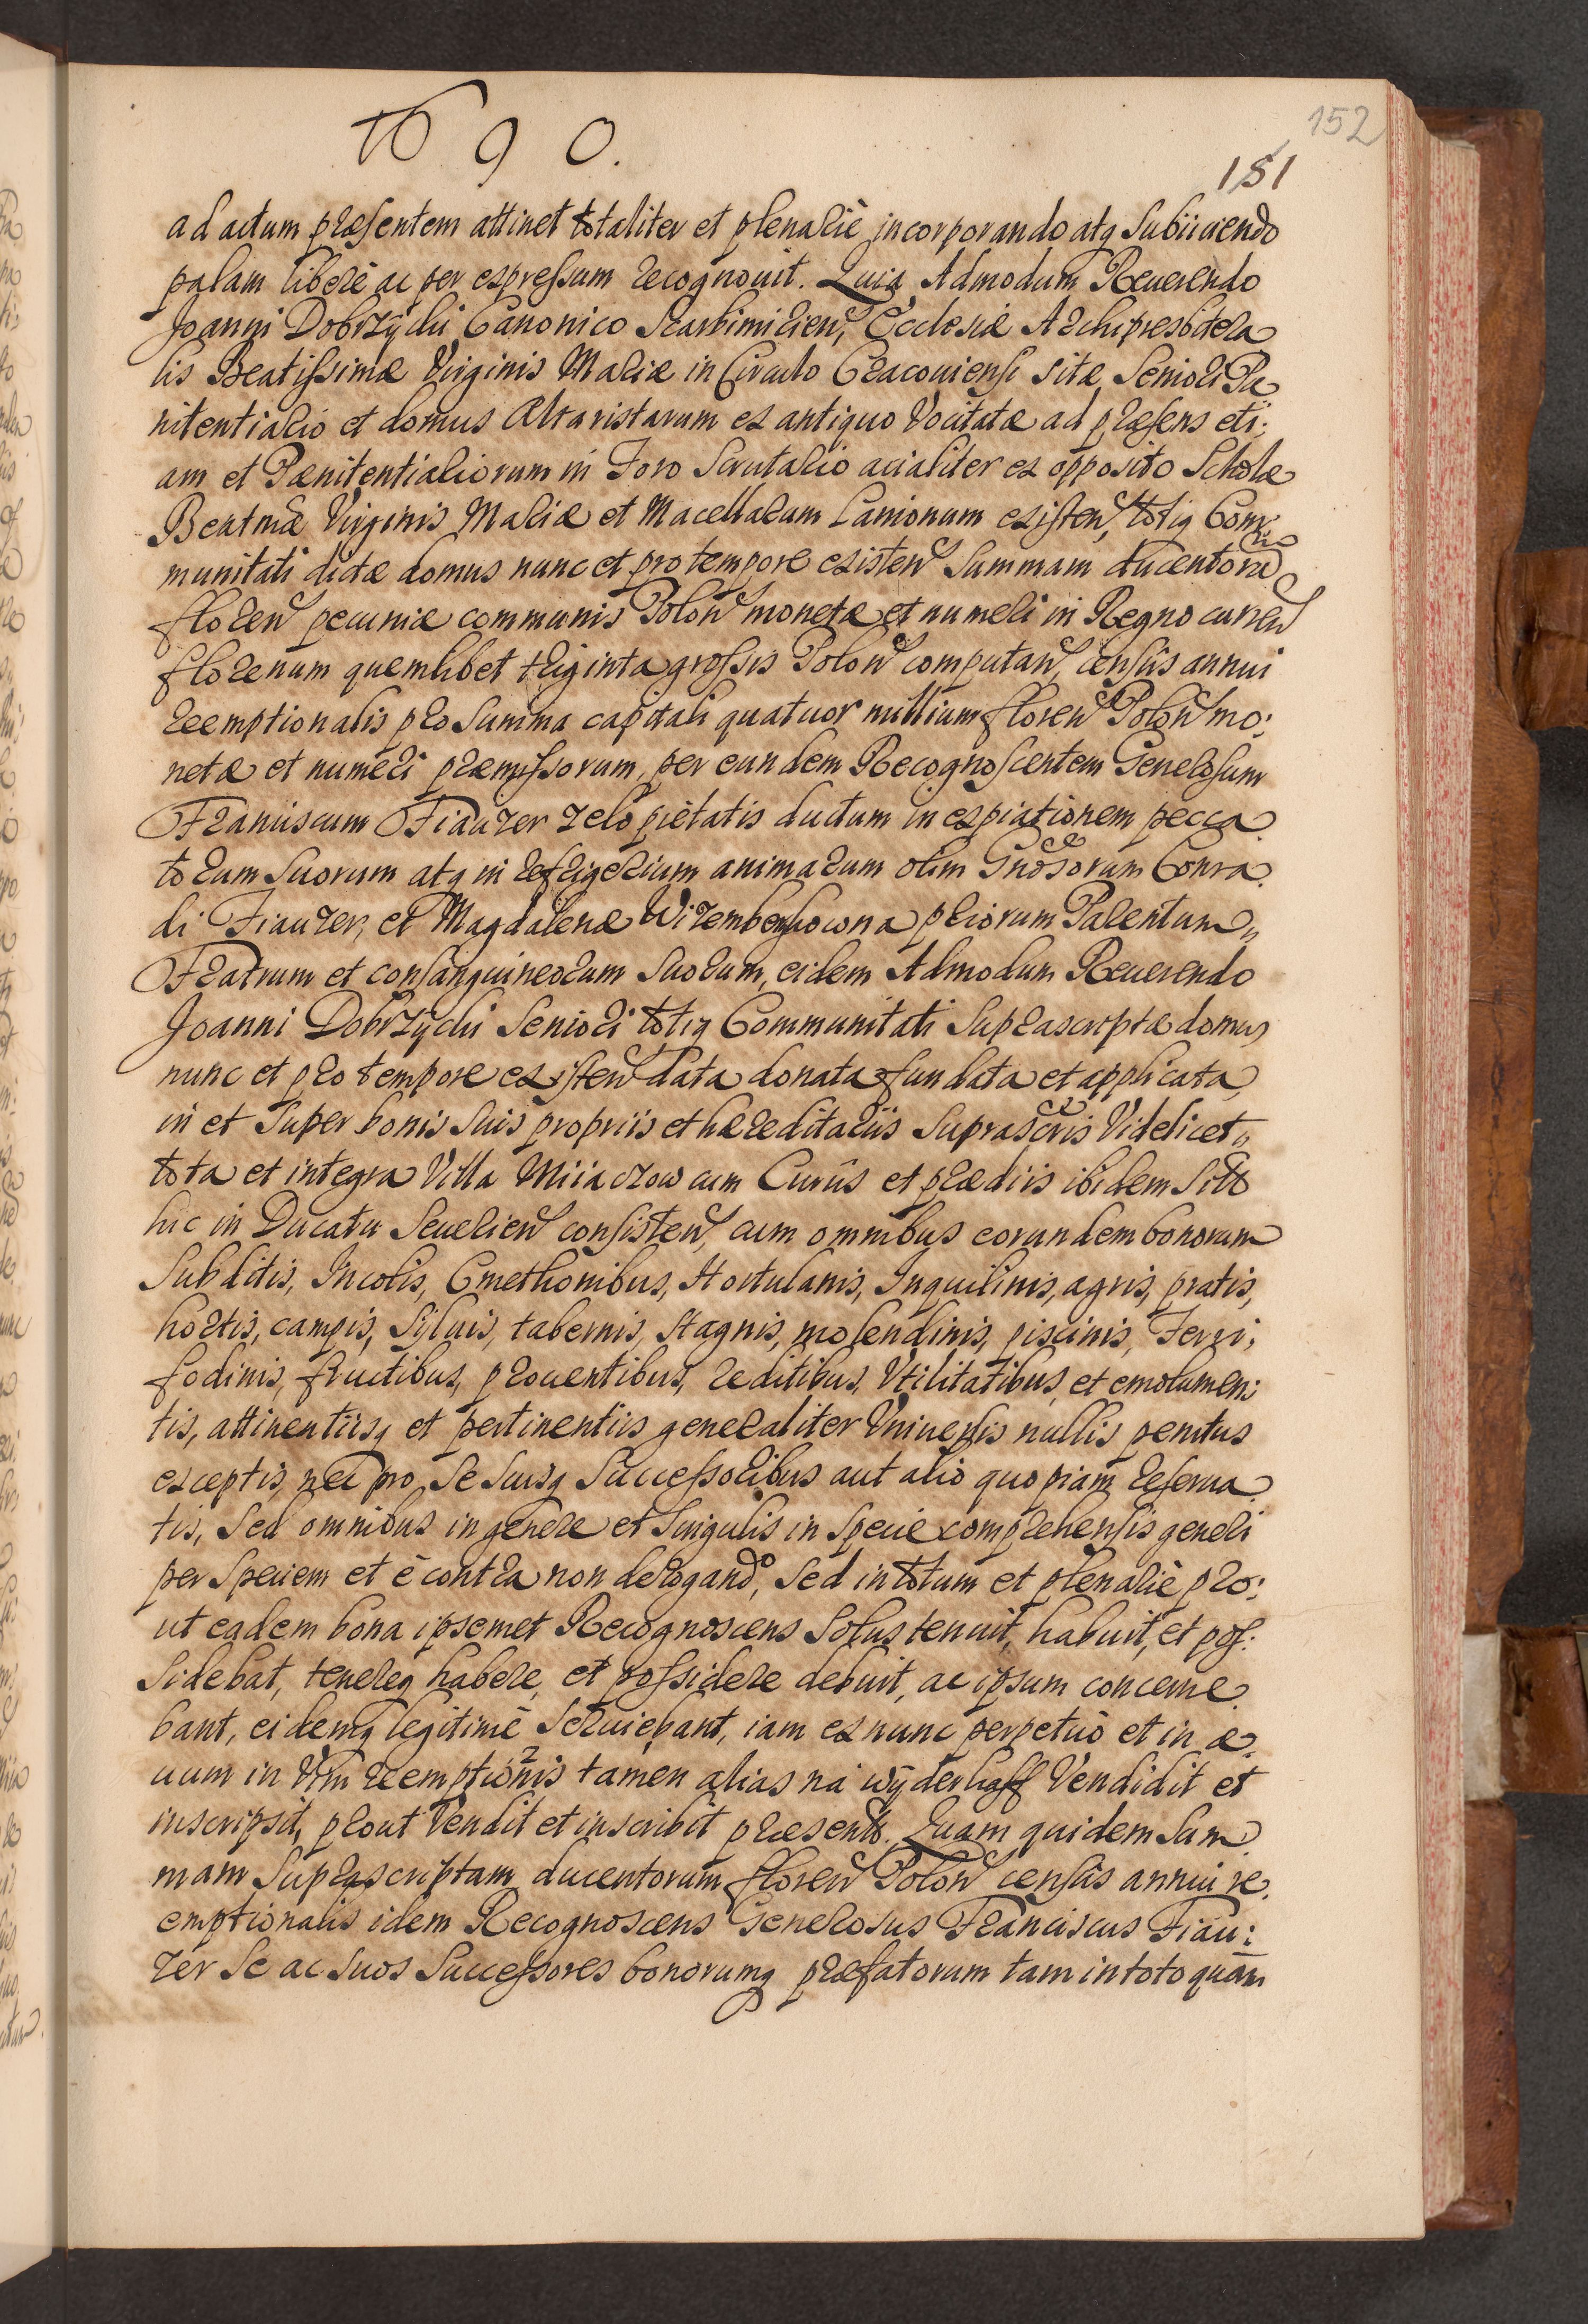 1690.
152
151
ad actum præsentem attinet totaliter et plenariè incorporando atq Subiiciendo
palam liberè ac per expressum recognouit. Quia Admodum Reuerendo
Joanni Dobrzÿchi Canonico Skarbimirien, Ecclesiæ Archipresbitera
lis Beatissimæ Virginis Mariæ in Circulo Cracouiensi sitæ, Seniori Pæ
nitentiario et domus Altaristarum ex antiquo Vocitatæ ad præsens eti:
am et Pænitentiariorum in Foro Scrutario acialiter ex opposito Scholæ
Beatmæ Virginis Mariæ et Macellarum Lanionum existen, totiq Com:
munitati dictæ domus nunc et pro tempore existen Summam ducentorū
floren pecuniæ communis Polon monetæ et numeri in Regno curren
florenum quemlibet triginta grossis Polon computan, censûs annui
reemptionalis pro Summa capitali quatuor millium floren Polon mo:
netæ et numeri præmissorum, per eundem Recognoscentem Generosum
Franciscum Fiauzer zelo pietatis ductum in expiationem pecca
torum Suorum atq in refrigerium animarum olim Gnosorum Conra
di Fiauzer, et Magdalenæ Wizemberkowna priorum Parentum,
Fratrum et consanguineorum Suorum, eidem Admodum Reuerendo
Joanni Dobrzÿchi Seniori totiq Communitati Suprascriptæ domus
nunc et pro tempore existen data donata fundata et applicata,
in et Super bonis Suis propriis et hæreditariis Suprascris Videlicet
tota et integra Villa Miiaczow cum Curiis et prædiis ibidem Sitts
hic in Ducatu Seuerien consisten, cum omnibus eorundem bonorum
Subditis, Incolis, Cmethonibus, Hortulanis, Inquilinis, agris, pratis,
hortis, campis, Syluis, tabernis, Stagnis, molendinis, piscinis, Ferri:
fodinis, fructibus, prouentibus, reditibus, Vtilitatibus, et emolumen:
tis, attinentiisq et pertinentiis generaliter Vniuersis nullis penitus
exceptis, nec pro Se Suisq Successoribus aut alio quopiam reserua
tis, Sed omnibus in genere et Singulis in Specie comprehensis generi
per Speciem et è contra non derogando, Sed in totum et plenariè pro:
ut eadem bona ipsemet Recognoscens Solus tenuit, habuit, et pos:
Sidebat, tenereq habere, et possidere debuit, ac ipsum concerne
bant, eidemq legitimè Seruiebant, iam ex nunc perpetuò et in æ
uum in Vim reemptionis tamen alias na wÿderkaff Vendidit et
inscripsit, prout Vendit et inscribit præsentts. Quam quidem Sum
mam Suprascriptam ducentorum floren Polon censûs annui re
emptionalis idem Recognoscens Generosus Franciscus Fiau:
zer Se ac Suos Successores bonorumq præfatorum tam in toto quàm